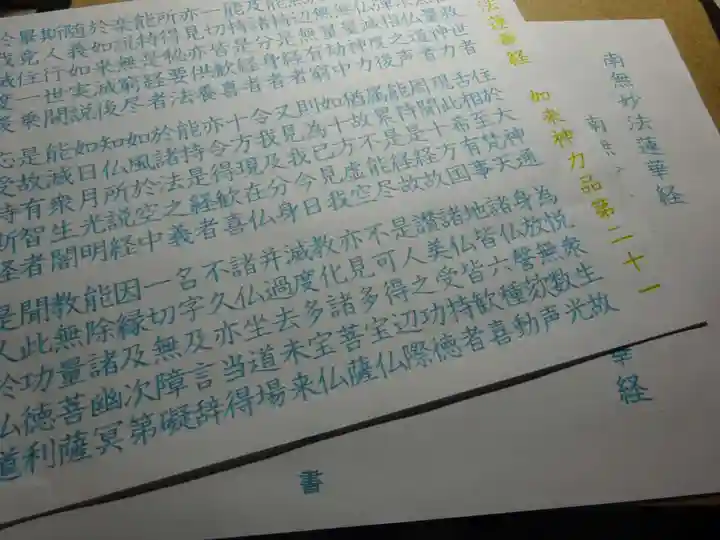 南無妙法蓮華経
南無
華経
書
法蓮華経 如来神力品第二十一
世者 住於大神通 為悦衆生故
神力 舌相至梵天 身放無数光
道者 現此希有事 諸仏謦欬声
之声 周聞十方国 地皆六種動
度後 能持是経故 諸仏皆歓喜
量神力 属累是経故 讃美受持者
量劫中 猶故不能尽 是人之功徳
無辺無有窮 如十方虚空 不可得辺際
能持是経者 則為已見我 亦見多宝仏
及諸分身者 又見我今日 教化諸菩薩
能持是経者 令我及分身 滅度多宝仏
一切皆歓喜 十方現在仏 并過去未来
亦見亦供養 亦令得歓喜 諸仏坐道場
所得秘要法 能持是経者 不久亦当得
能持是経者 於諸法之義 名字及言辞
楽説無窮尽 如風於空中 一切無障礙
於如来滅後 知仏所説経 因縁及次第
随義如実説 如日月光明 能除諸幽冥
斯人行世間 能滅衆生闇 教無量菩薩
畢竟住一乗 是故有智者 聞此功徳利
於我滅度後 受持斯経 人於仏道